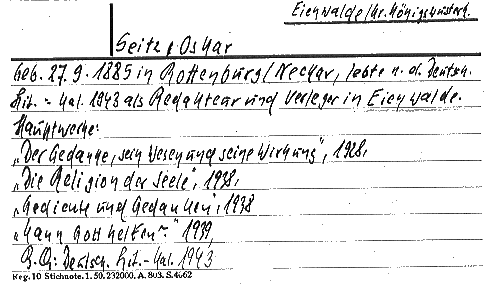 Eichwalde/Kr. Königswusterh.
Seitz, Oskar
Geb. 27.9.1885 in Rottenburg/Neckar, lebte n. d. Deutsch.
Lit.-Kal. 1943 als Redakteur und Verleger in Eichwalde.
Hauptwerke:
„Der Gedanke, sein Wesen und seine Wirkung", 1928,
„Die Religion der Seele", 1938,
„Gedichte und Gedanken", 1938
„Kann Gott helfen?" 1939,
B.Q: Deutsch. Lit.-Kal. 1943
Reg. 10 Stichnote. 1. 50. 232000. A. 803. S. 4662